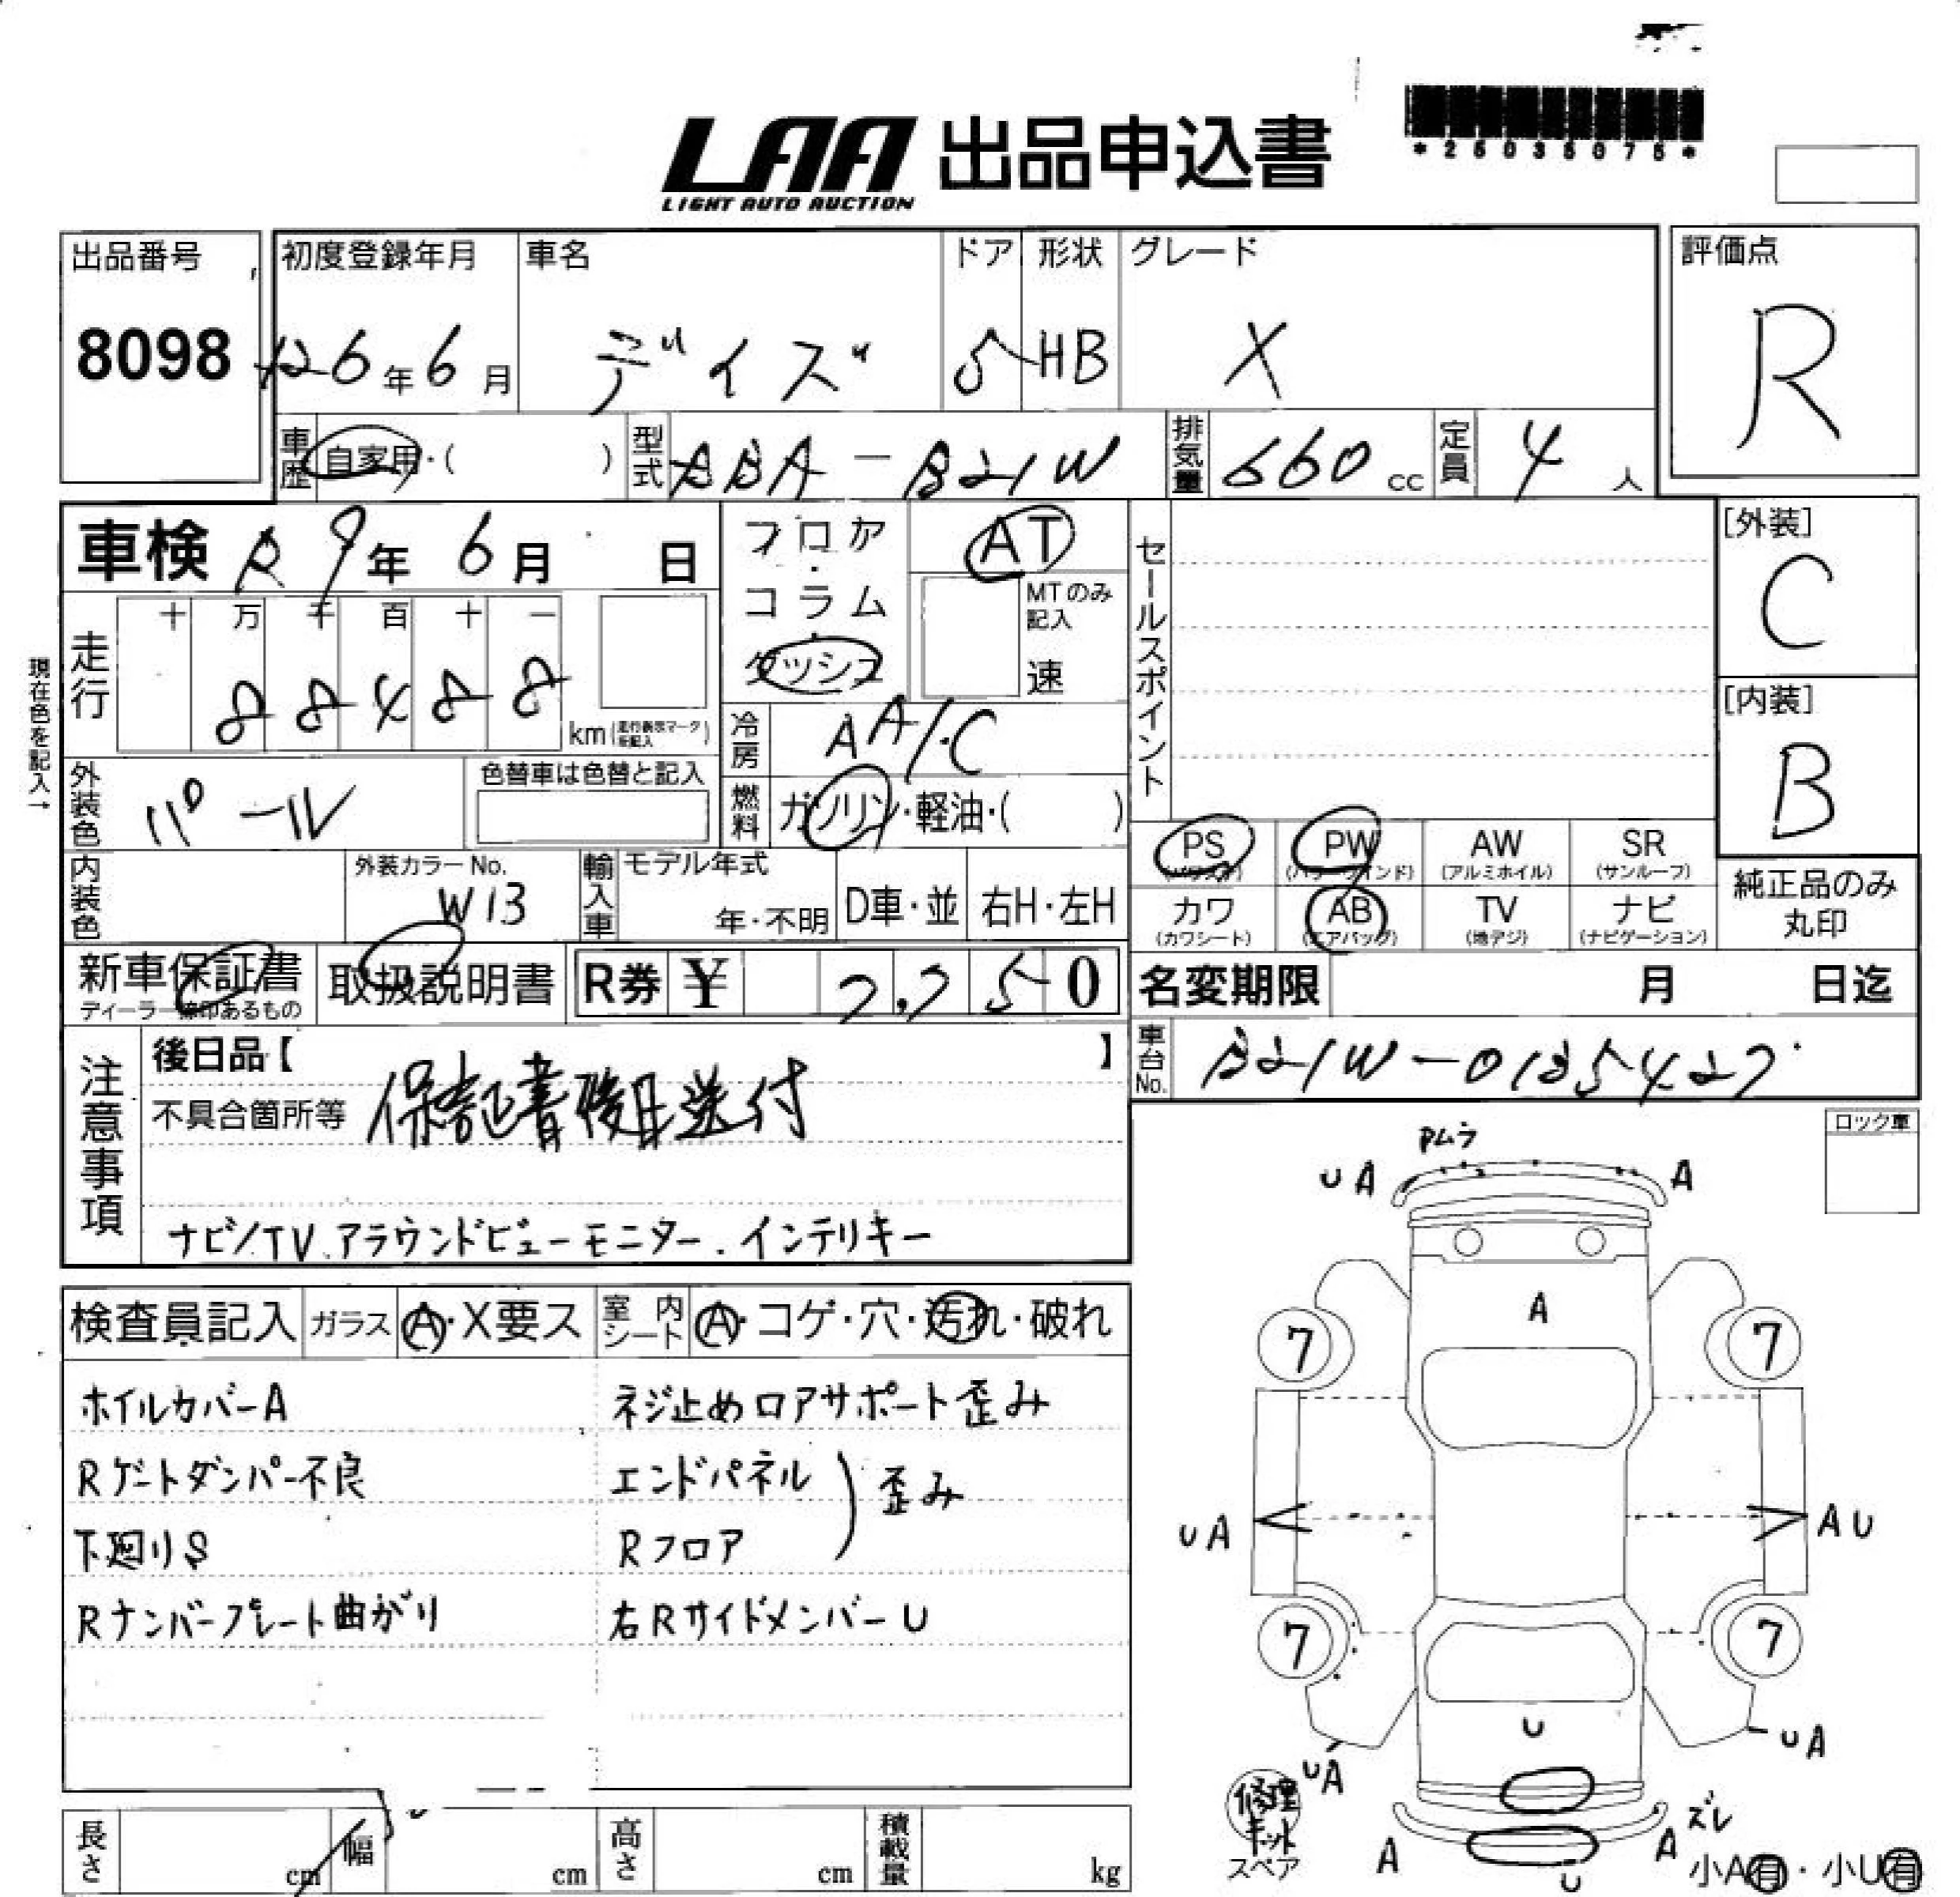 *25035075*
LAA 出品申込書
LIGHT AUTO AUCTION
出品番号 初度登録年月 車名 ドア 形状 グレード 評価点
8098 H26年6月 デイズ 5 HB X R
車歴 自家用・( ) 型式 DBA-B21W 排気量 660cc 定員 4人
車検 R9年6月 日 フロア・コラム・ダッシュ AT セールスポイント [外装]
C
MTのみ記入 速
走行 十 万 千 百 十 一
88488 km(走行表示マークを記入)
現在色を記入→
[内装]
B
冷房 AA/C
外装色 パール 色替車は色替と記入 燃料 ガソリン・軽油・( )
PS(パワステ) PW(パワーウインド) AW(アルミホイル) SR(サンルーフ)
カワ(カワシート) AB(エアバッグ) TV(地デジ) ナビ(ナビゲーション)
純正品のみ
丸印
内装色 外装カラーNo. W13 輸入車 モデル年式 年・不明 D車・並 右H・左H
新車保証書 取扱説明書 R券 ¥ 7,750 名変期限 月 日迄
ディーラー捺印あるもの
車台No. B21W-0135427
注意事項 後日品【 】
不具合箇所等 保証書後日送付
ナビ/TV.アラウンドビューモニター.インテリキー
ロック車
検査員記入 ガラス A・X要ス 室内シート A・コゲ・穴・汚れ・破れ
ホイルカバーA ネジ止めロアサポート歪み
Rゲートダンパー不良 エンドパネル
歪み
下廻りS Rフロア
Rナンバープレート曲がり 右RサイドメンバーU
Pムラ
UA A
A
7 7
UA AU
7 7
U
UA UA
修理キット
スペア
ズレ
A A
U
小A有・小U有
長さ cm 幅 cm 高さ cm 積載量 kg